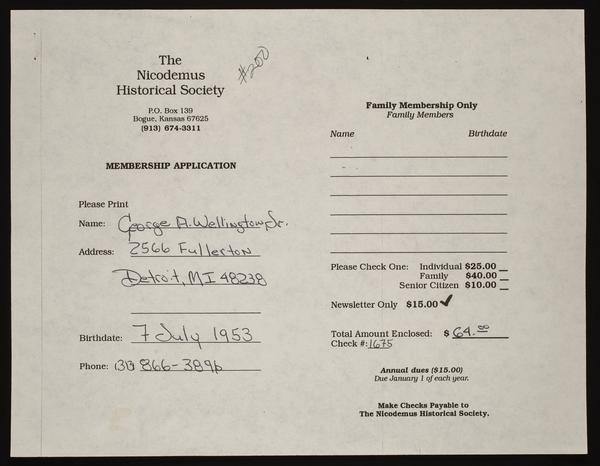 The
Nicodemus
Historical Society
#200
P.O. Box 139
Bogue, Kansas 67625
(913) 674-3311
MEMBERSHIP APPLICATION
Please Print
Name: George A. Wellington, Jr.
Address: 2566 Fullerton
Detroit, MI 48238
Birthdate: 7 July 1953
Phone: (313) 866-3896
Family Membership Only
Family Members
Name Birthdate
Please Check One: Individual $25.00
Family $40.00
Senior Citizen $10.00
Newsletter Only $15.00 ✓
Total Amount Enclosed: $ 64.00
Check #: 1675
Annual dues ($15.00)
Due January 1 of each year.
Make Checks Payable to
The Nicodemus Historical Society.